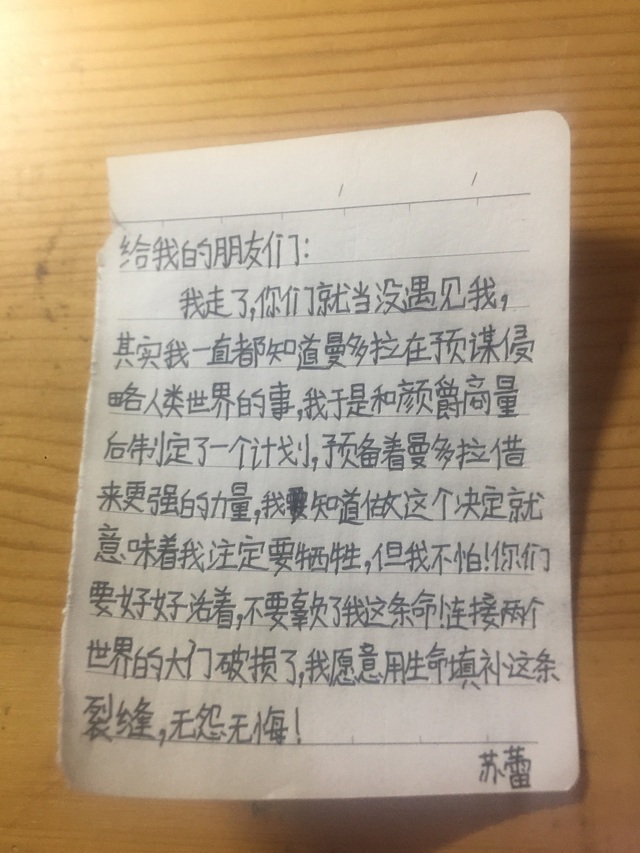 给我的朋友们：
我走了，你们就当没遇见我，
其实我一直都知道曼多拉在预谋侵
略人类世界的事，我于是和颜爵商量
后制定了一个计划，预备着曼多拉借
来更强的力量，我知道做这个决定就
意味着我注定要牺牲，但我不怕！你们
要好好活着，不要辜负了我这条命！连接两个
世界的大门破损了，我愿意用生命填补这条
裂缝，无怨无悔！
苏蕾